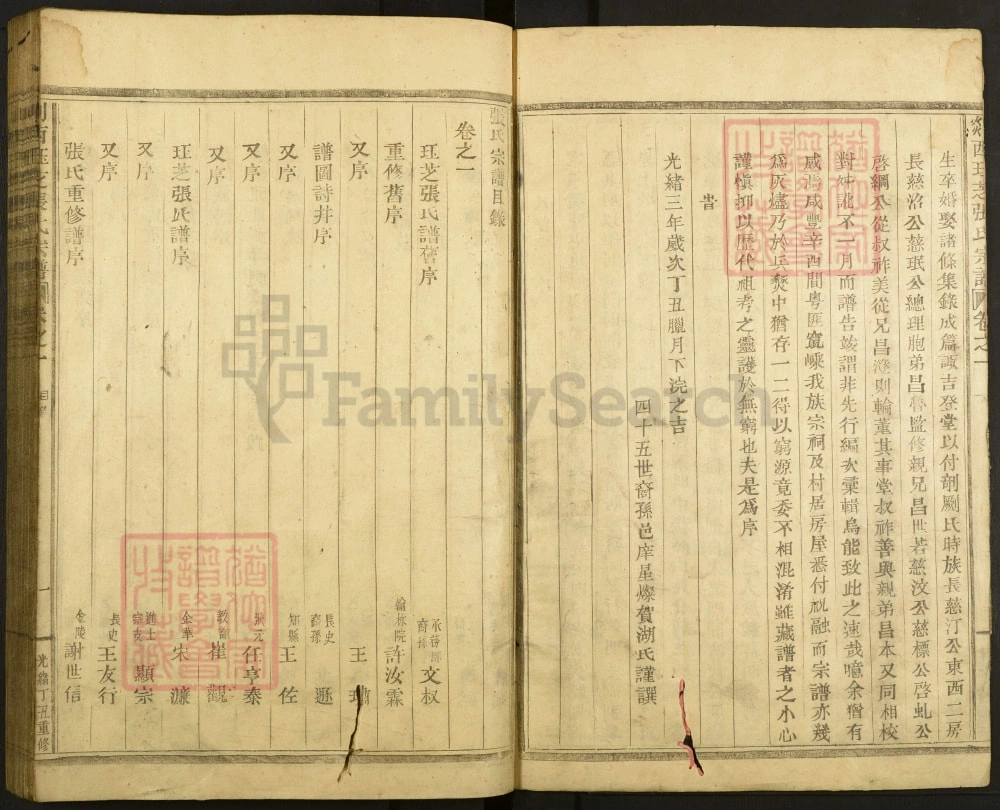 西珏芝張氏宗譜 卷之一
生卒婚娶諸條集錄成篇諏吉登堂以付剞劂氏時族長慈汀公東西二房
長慈洽公慈珉公總理胞弟昌魯監修親兄昌世若慈汶公慈標公啓虬公
啓綱公從叔祚美從兄昌澄則輪董其事堂叔祚善與親弟昌本又同相校
對艸訛不一月而譜告竣謂非先行編次彙輯烏能致此之速哉噫余猶有
感焉咸豐辛酉間粵匪竄嵊我族宗祠及村居房屋悉付祝融而宗譜亦幾
爲灰燼乃於兵燹中猶存一二得以窮源竟委不相混淆雖藏譜者之小心
謹愼抑以歷代祖考之靈護於無窮也夫是爲序
旹
光緒三年歲次丁丑臘月下浣之吉
四十五世裔孫邑庠星燦賀湖氏謹譔
張氏宗譜目錄
卷之一
珏芝張氏譜舊序 承務郎裔孫 文权
重修舊序 翰林院 許汝霖
又序 王
譜圖詩并序 長史裔孫 遜
又序 知縣 王佐
又序 狀元 任亨泰
又序 教諭 崔觀
珏芝張氏譜序 金華 宋濂
又序 進士宗友 顯宗
又序 長史 王友行
張氏重修譜序 金陵 謝世信
西珏芝張氏宗譜 卷之一 目錄 一 光緒丁丑重修
FamilySearch